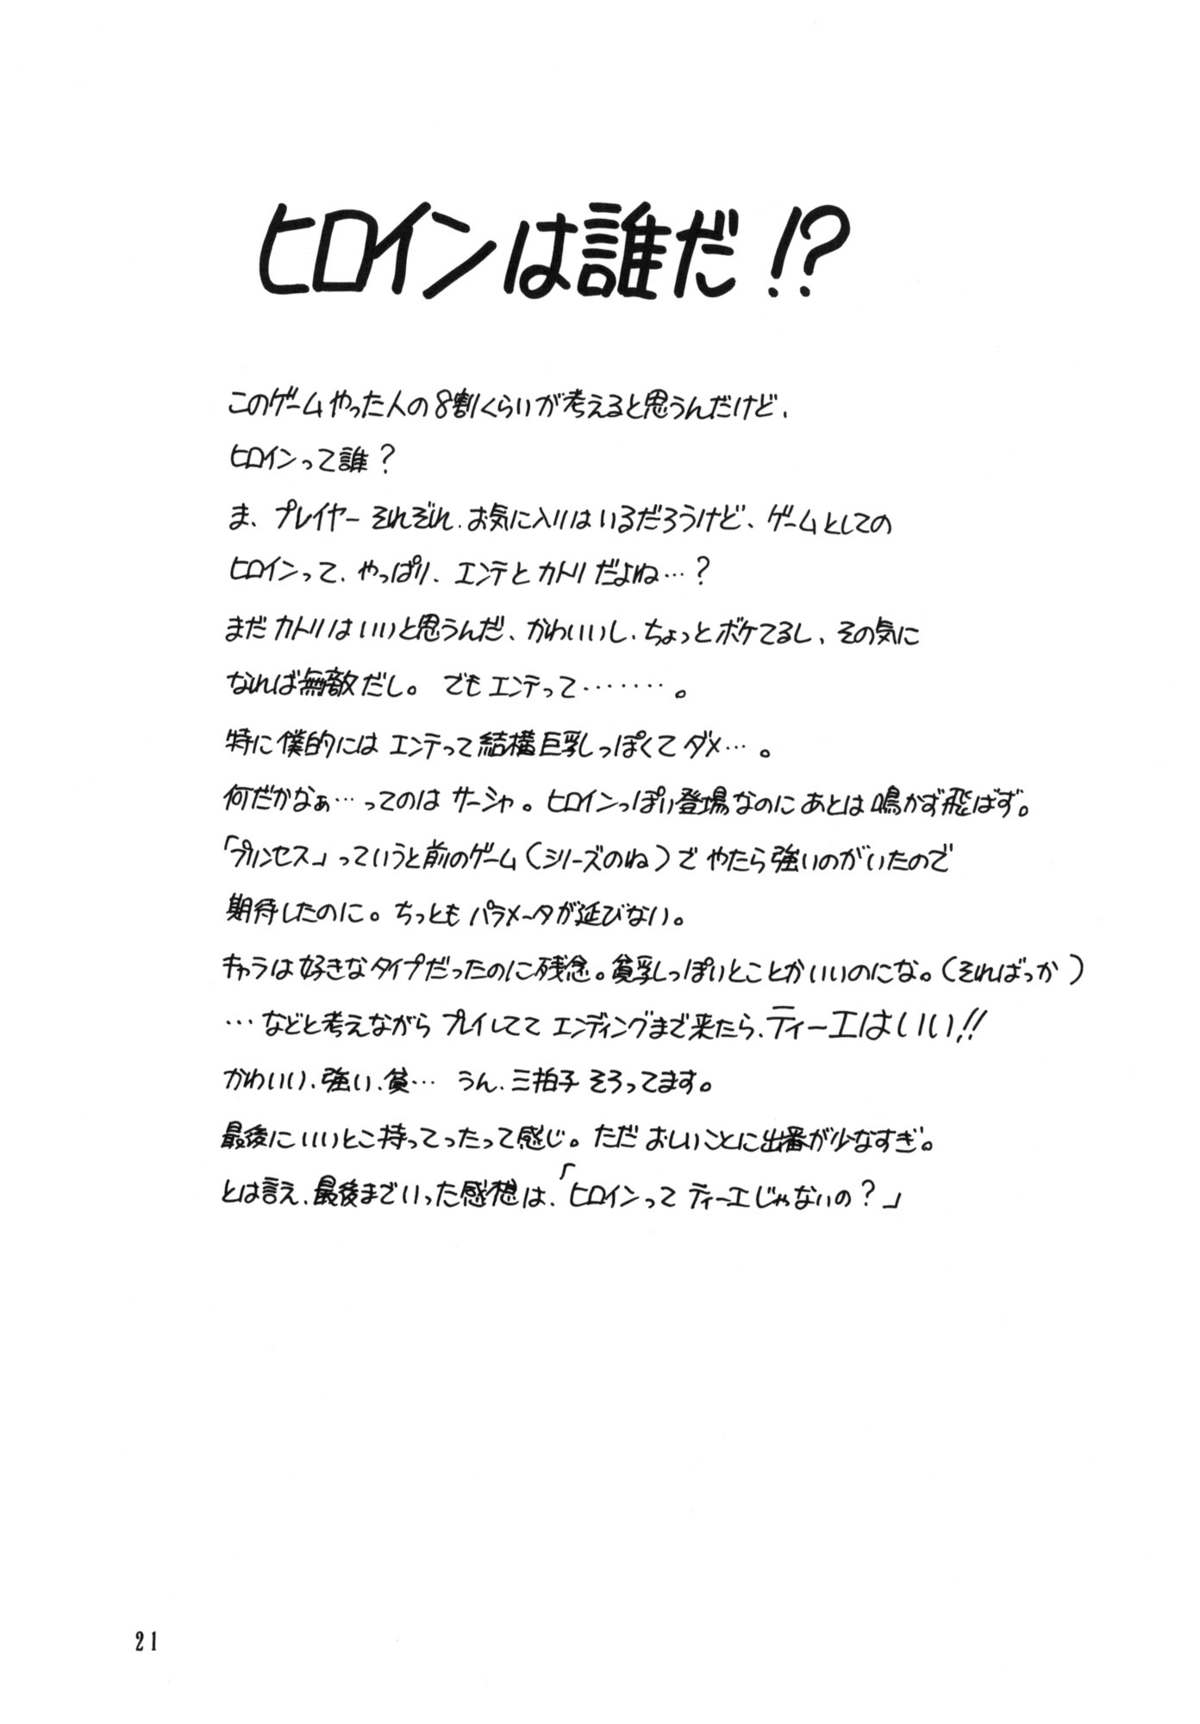 ヒロインは誰だ!?
このゲームやった人の8割くらいが考えると思うんだけど、
ヒロインって誰?
ま、プレイヤーそれぞれ、お気に入りはいるだろうけど、ゲームとしての
ヒロインって、やっぱり、エンテとカトリだよね…?
まだカトリはいいと思うんだ、かわいいし、ちょっとボケてるし、その気に
なれば無敵だし。でもエンテって………。
特に僕的にはエンテって結構巨乳っぽくてダメ…。
何だかなぁ…ってのはサーシャ。ヒロインっぽい登場なのにあとは鳴かず飛ばず。
「プリンセス」っていうと前のゲーム(シリーズのね)でやたら強いのがいたので
期待したのに。ちっともパラメータが延びない。
キャラは好きなタイプだったのに残念。貧乳っぽいとことかいいのにな。(そればっか)
…などと考えながらプレイしててエンディングまで来たら、ティーエはいい!!
かわいい、強い、貧…うん、三拍子そろってます。
最後にいいとこ持ってったって感じ。ただおしいことに出番が少なすぎ。
とは言え、最後までいった感想は、「ヒロインってティーエじゃないの?」
21